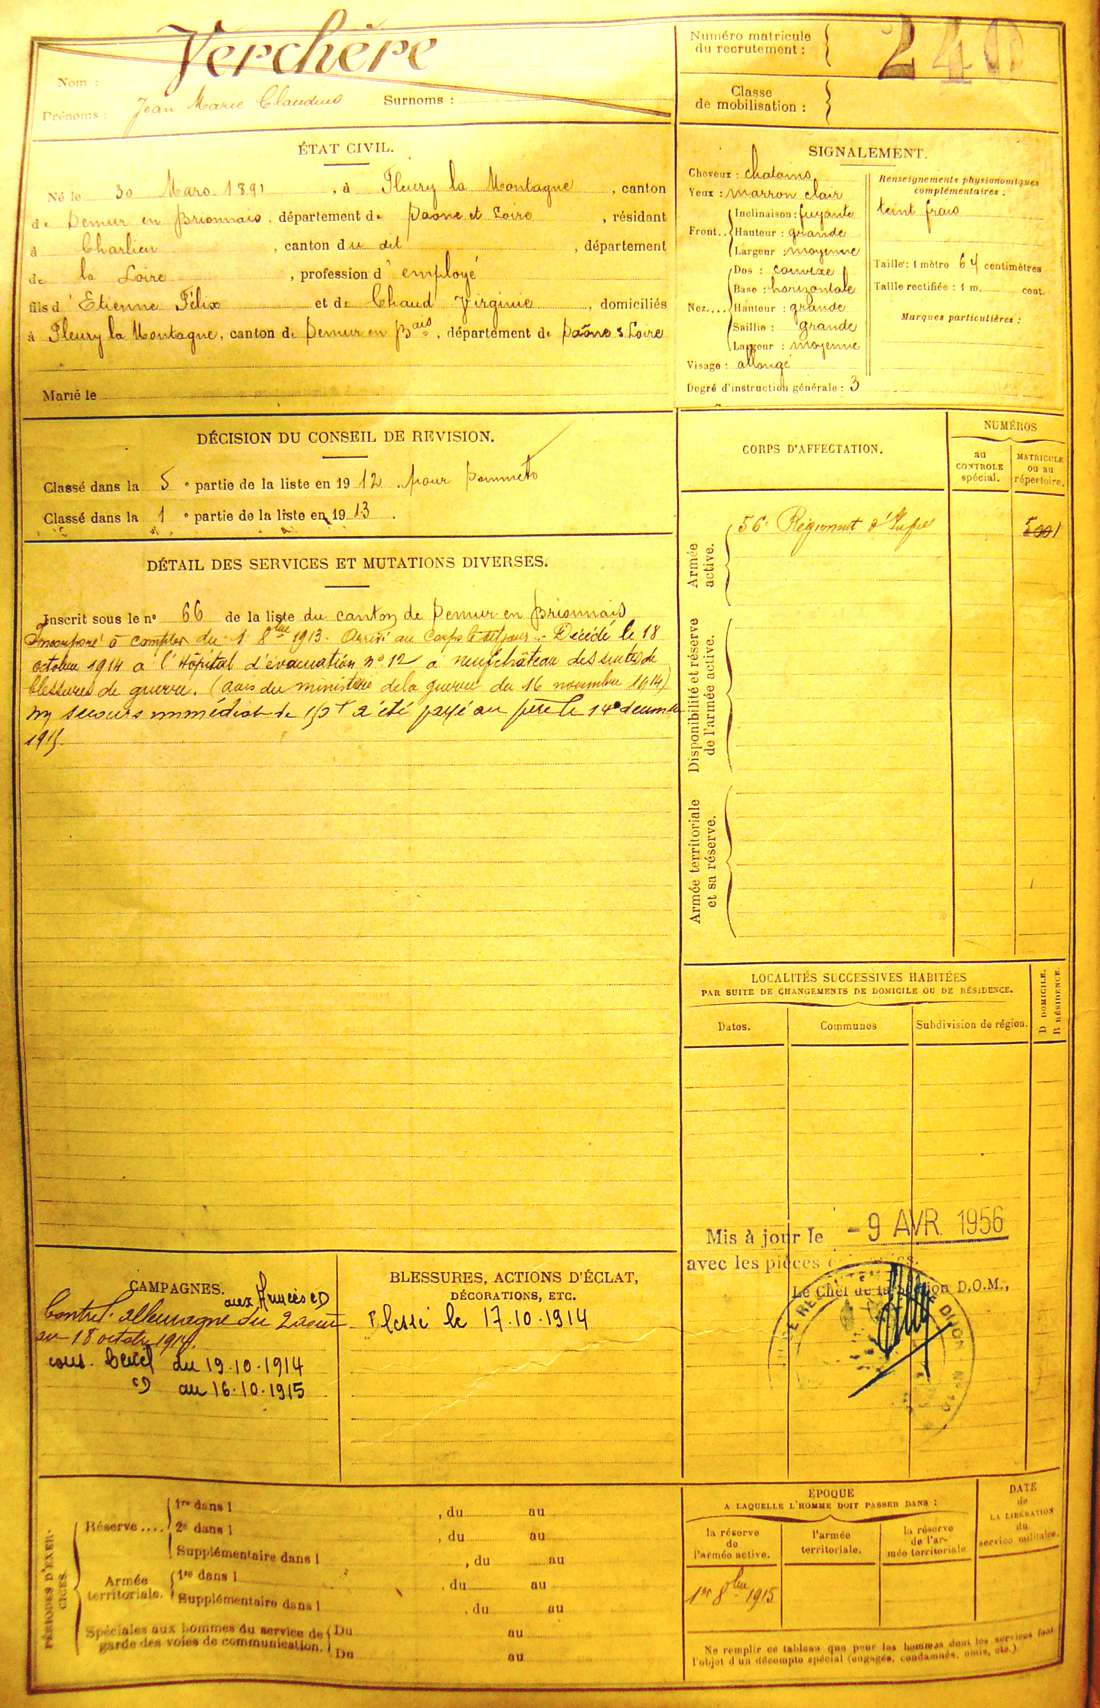 Nom : Verchère
Prénoms : Jean Marie Claudius Surnoms :
Numéro matricule
du recrutement : 240
Classe
de mobilisation :
ÉTAT CIVIL.
Né le 30 Mars 1891, à Fleury la Montagne, canton
de Semur en Brionnais, département de Saône et Loire, résidant
à Charlieu, canton du dit, département
de la Loire, profession d'employé
fils d'Etienne Félix et de Chaud Virginie, domiciliés
à Fleury la Montagne, canton de Semur en Bais, département de Saône & Loire
Marié le
SIGNALEMENT.
Cheveux : chatains
Yeux : marron clair
Front.. Inclinaison : fuyante
Hauteur : grande
Largeur : moyenne
Nez.... Dos : convexe
Base : horizontale
Hauteur : grande
Saillie : grande
Largeur : moyenne
Visage : allongé
Degré d'instruction générale : 3
Renseignements physionomiques
complémentaires :
teint frais
Taille : 1 mètre 64 centimètres
Taille rectifiée : 1 m. cent.
Marques particulières :
DÉCISION DU CONSEIL DE REVISION.
Classé dans la 5e partie de la liste en 1912. pour
Classé dans la 1e partie de la liste en 1913.
DÉTAIL DES SERVICES ET MUTATIONS DIVERSES.
Inscrit sous le no 66 de la liste du canton de Semur en Brionnais
Incorporé à compter du 1 8bre 1913. Arrivé au Corps le dit jour. - Décédé le 18
octobre 1914 à l'Hôpital d'évacuation no 12 à neufchâteau des suites de
blessures de guerre. (avis du ministère de la guerre du 16 novembre 1914)
Un secours immédiat de 150f a été payé au père le 14
1915.
CORPS D'AFFECTATION.
NUMÉROS
au
CONTROLE
spécial.
MATRICULE
ou au
répertoire.
Armée
active.
56e Régiment d'Infie
5001
Disponibilité et réserve
de l'armée active.
Armée territoriale
et sa réserve.
LOCALITÉS SUCCESSIVES HABITÉES
PAR SUITE DE CHANGEMENTS DE DOMICILE OU DE RÉSIDENCE.
Dates. Communes Subdivision de région.
D DOMICILE.
R RÉSIDENCE.
Mis à jour le -9 AVR. 1956
avec les pièces
Le Chef de la Section D.O.M.,
CAMPAGNES.
aux Armées CD
Contre l'allemagne du 2 aout
au 18 octobre 1914.
du 19.10.1914
CD au 16.10.1915
BLESSURES, ACTIONS D'ÉCLAT,
DÉCORATIONS, ETC.
Blessé le 17.10.1914
PÉRIODES D'EXER-
CICES.
Réserve.... 1re dans l , du au
2e dans l , du au
Supplémentaire dans l , du au
Armée
territoriale. 1re dans l , du au
Supplémentaire dans l , du au
Spéciales aux hommes du service de
garde des voies de communication. Du au
Du au
ÉPOQUE
A LAQUELLE L'HOMME DOIT PASSER DANS :
la réserve
de
l'armée active.
l'armée
territoriale.
la réserve
de l'ar-
mée territoriale
DATE
de
LA LIBÉRATION
du
service militaire.
1er 8bre 1915
Ne remplir ce tableau que pour les hommes dont les services font
l'objet d'un décompte spécial (engagés, condamnés, omis, etc.).